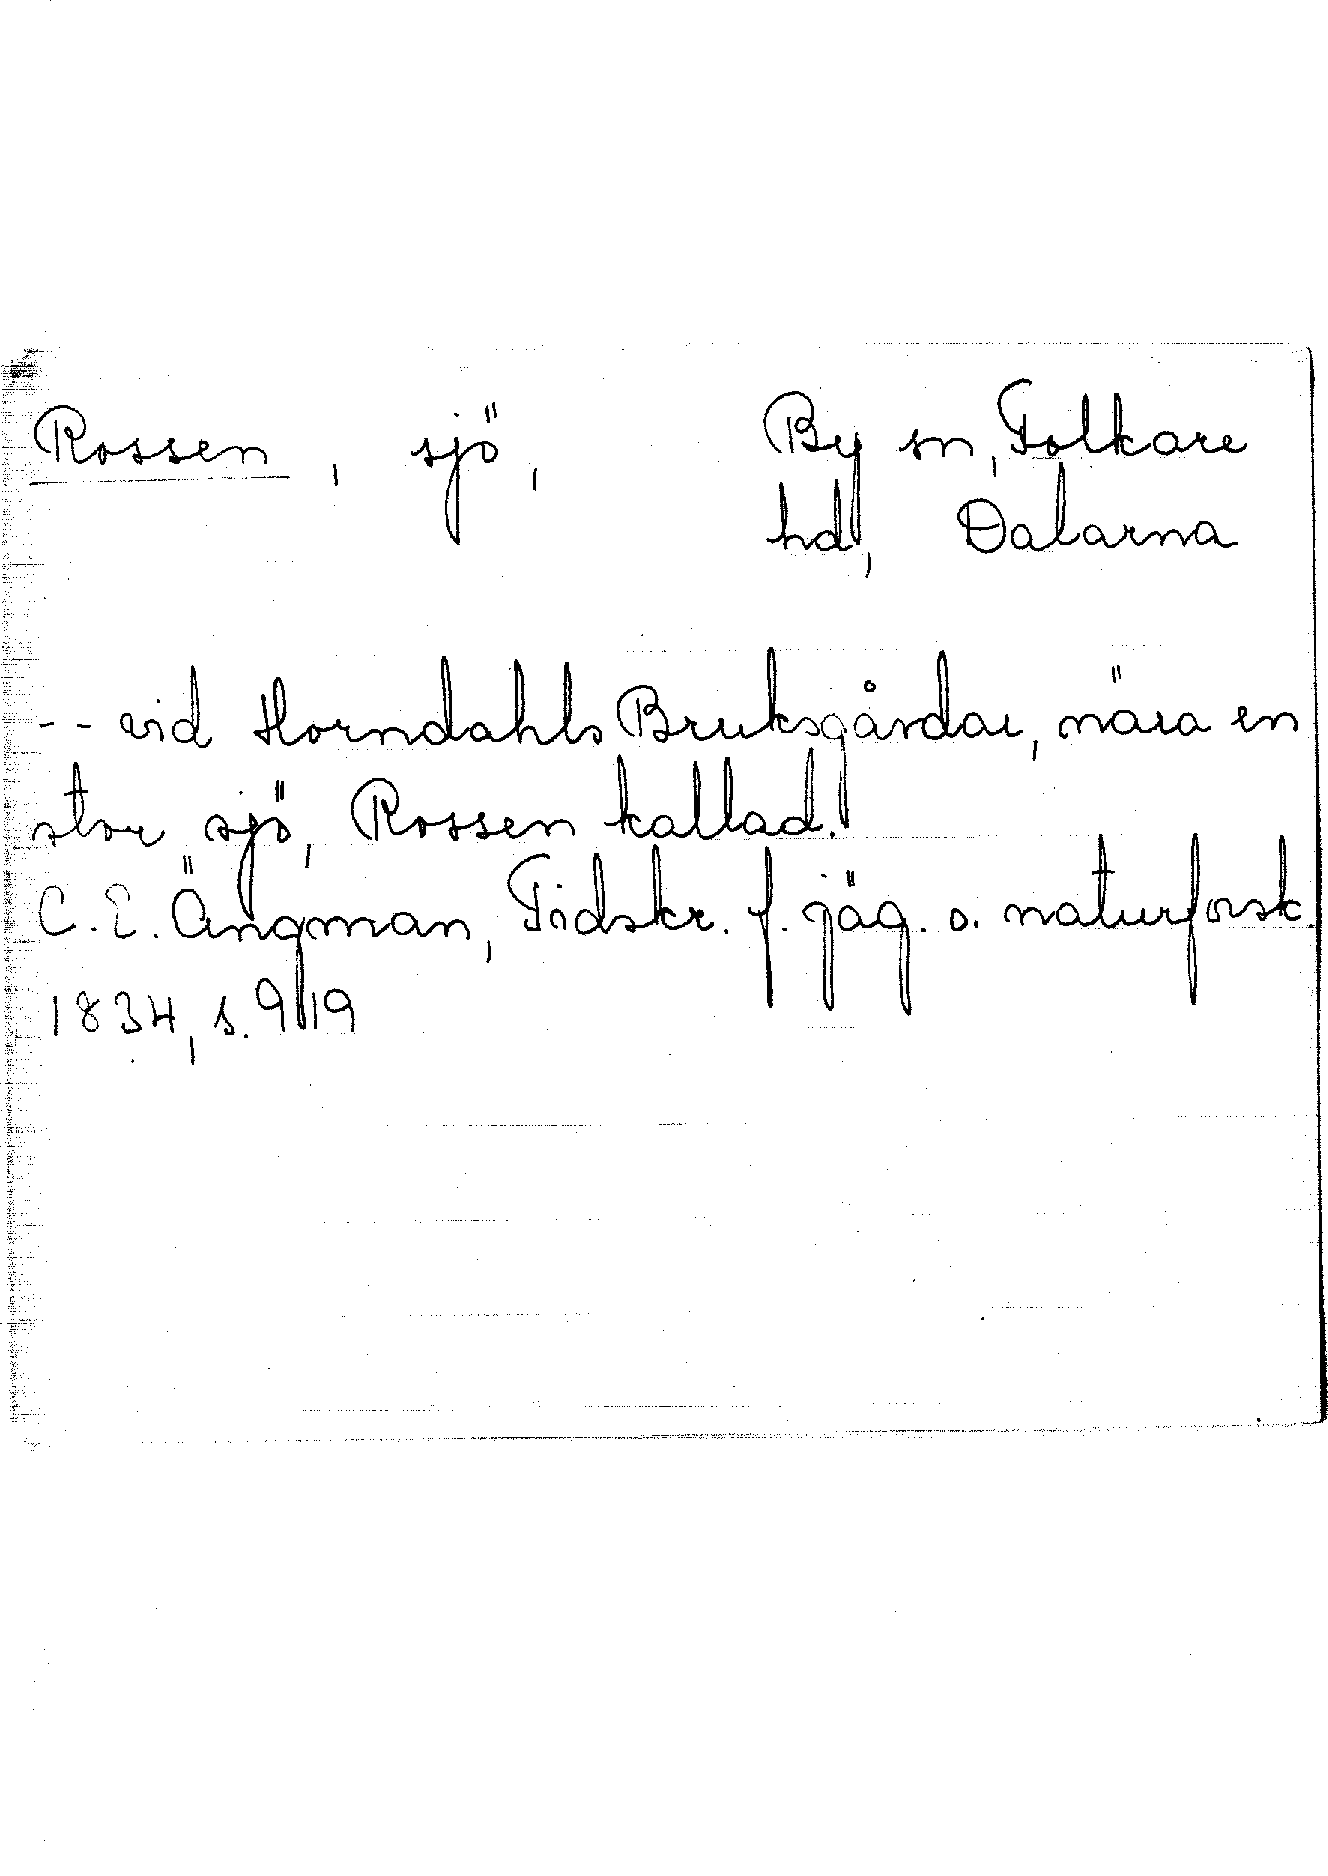 Rossen, sjö, By sn, Folkare
hd, Dalarna
-- vid Horndahls Bruksgårdar, nära en
stor sjö, Rossen kallad.
C. E. Ängman, Tidskr. f. jäg. o. naturforsk.
1834, s. 919